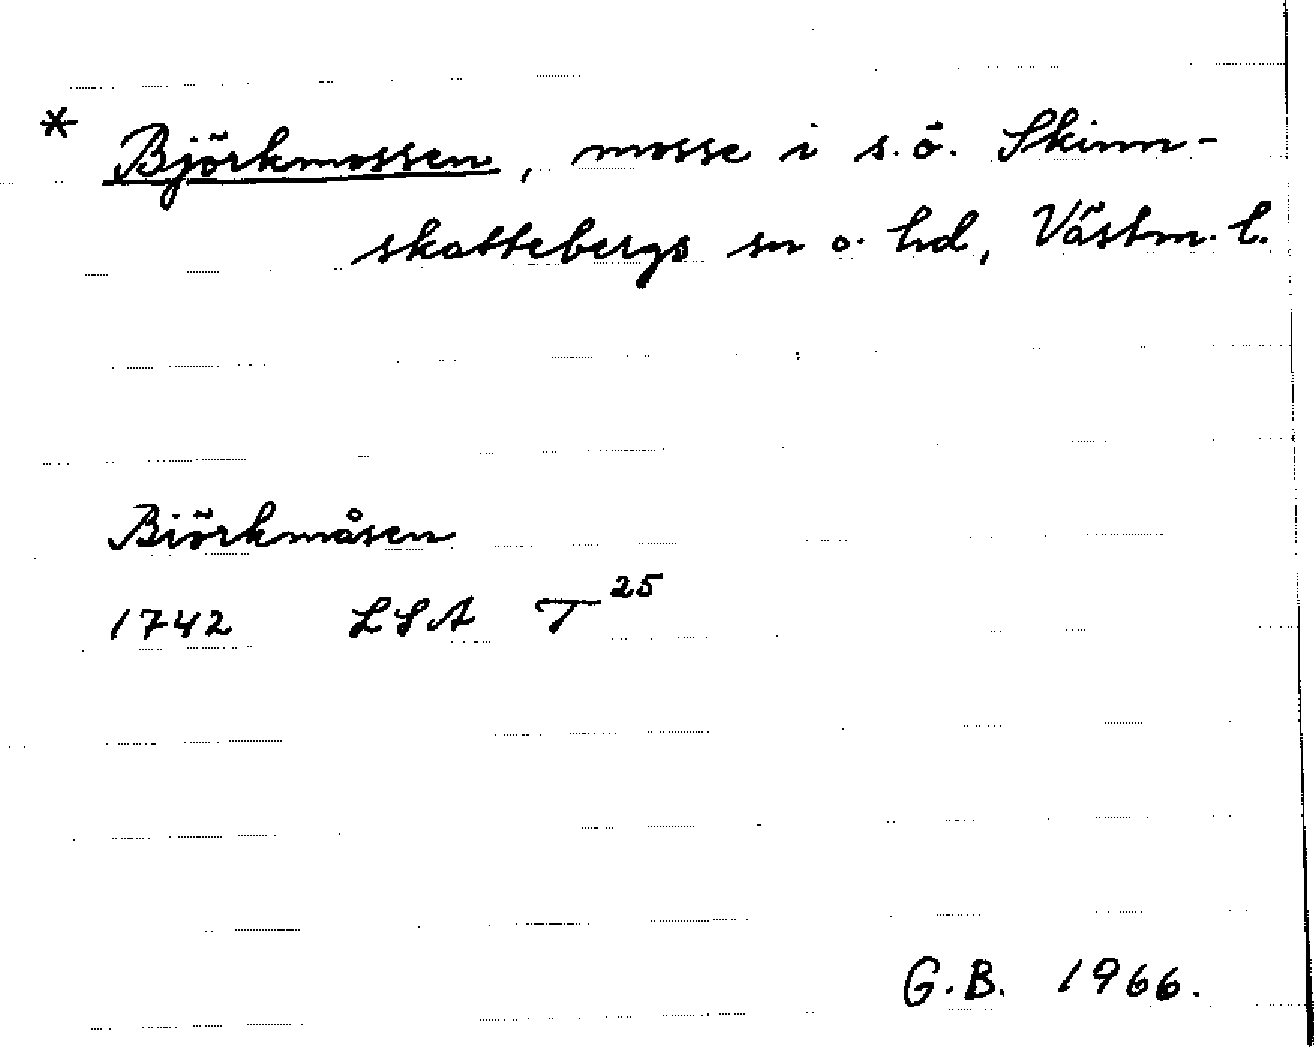 * Björkmossen, mosse i s.ö. Skinn-
skattebergs sn o. hd, Västm. l.
Biörkmåsen
1742 LSA T 25
G.B. 1966.